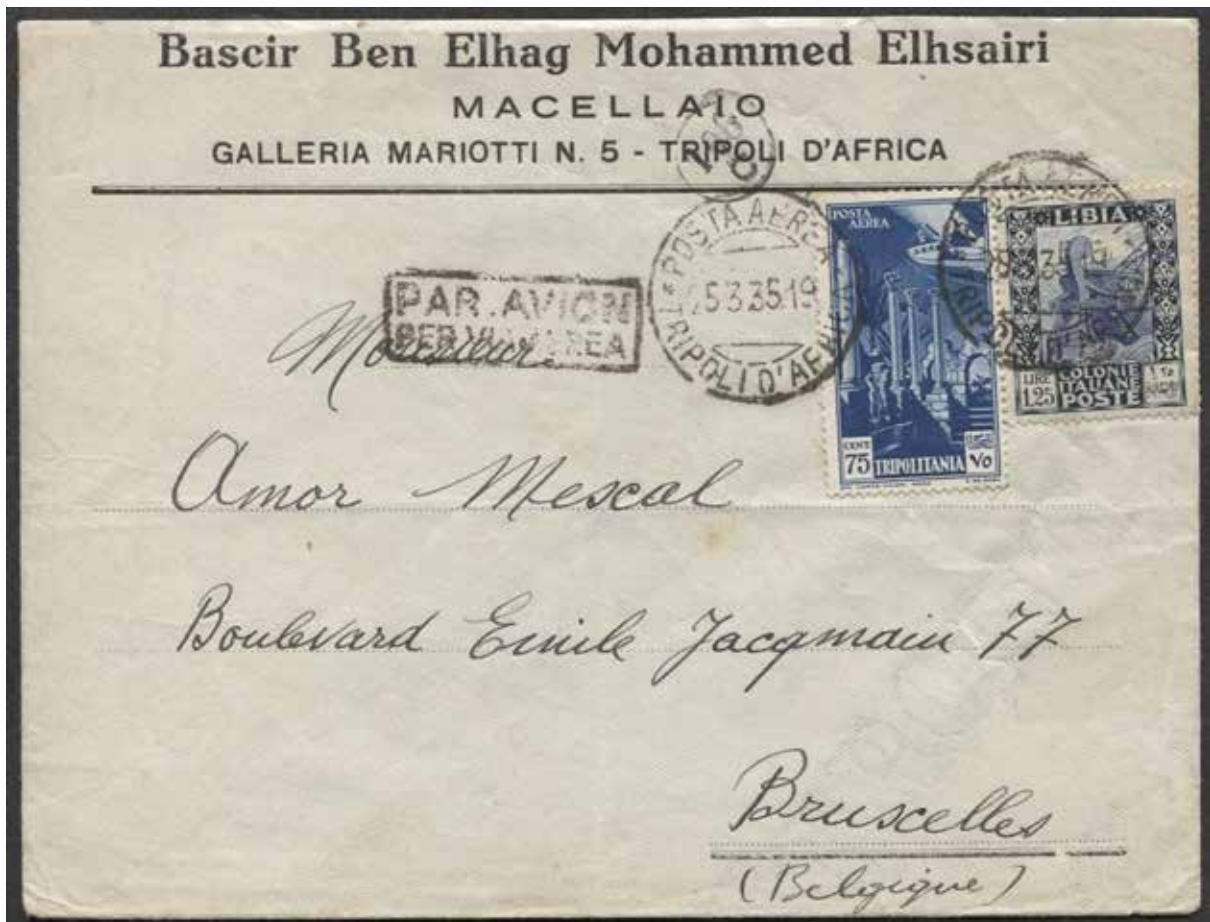 Bascir Ben Elhag Mohammed Elhsairi
MACELLAIO
GALLERIA MARIOTTI N. 5 - TRIPOLI D'AFRICA
PAR AVION
PER VIA AEREA
POSTA AEREA
25.3.35.19
TRIPOLI D'AFRICA
POSTA AEREA
CENT
75 TRIPOLITANIA ٧٥
LIBIA
LIRE
1.25
COLONIE
ITALIANE
POSTE
١٢٥
Monsieur
Amor Mescal
Boulevard Emile Jacqmain 77
Bruxelles
(Belgique)